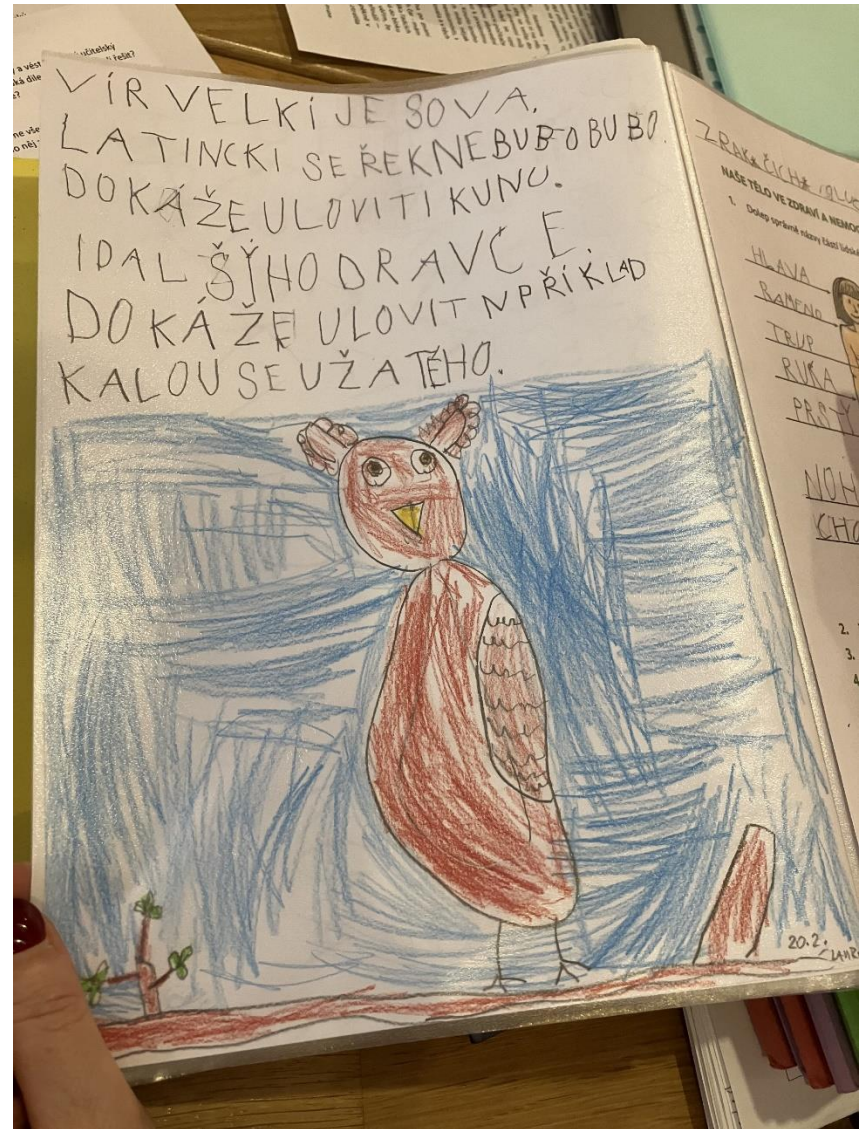 VÍR VELKÍ JE SOVA.
LATINCKI SE ŘEKNE BUBO BUBO.
DOKÁŽE ULOVITI KUNU.
I DALŠÝHO DRAVCE.
DOKÁŽE ULOVIT NPŘÍKLAD
KALOUSE UŽATÉHO.
20.2.
ZRAK, ČICH,
NAŠE TĚLO VE ZDRAVÍ A NEMOC
1. Dolep správné názvy částí lidské
HLAVA
RAMENO
TRUP
RUKA
PRSTY
NOH
CHO
2.
3.
4
učitelsky
řešit?
a vést
ká dile
ne vše
o něj